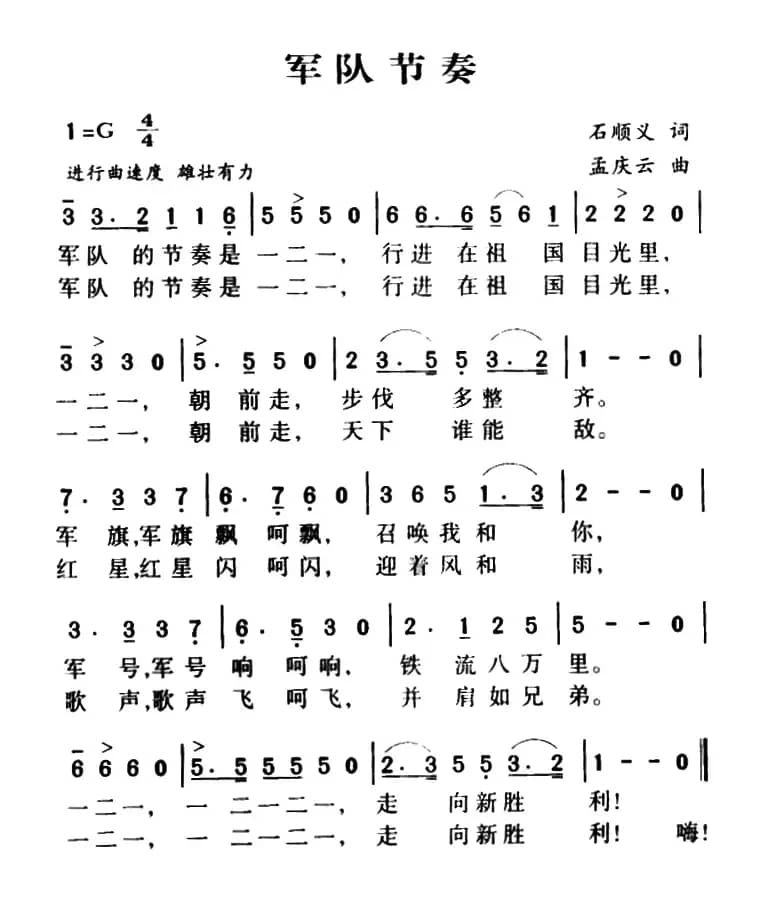 军队节奏
1=G 4/4
石顺义 词
进行曲速度 雄壮有力
孟庆云 曲
3 3. 2 1 1 6 | 5 5 5 0 | 6 6. 6 5 6 1 | 2 2 2 0 |
军队 的节奏是 一二一, 行进 在祖 国 目光里,
军队 的节奏是 一二一, 行进 在祖 国 目光里,
3 3 3 0 | 5. 5 5 0 | 2 3. 5 5 3. 2 | 1 - - 0 |
一二一, 朝 前走, 步伐 多整 齐。
一二一, 朝 前走, 天下 谁能 敌。
7. 3 3 7 | 6. 7 6 0 | 3 6 5 1. 3 | 2 - - 0 |
军 旗,军旗 飘 呵飘, 召唤我和 你,
红 星,红星 闪 呵闪, 迎着风和 雨,
3. 3 3 7 | 6. 5 3 0 | 2. 1 2 5 | 5 - - 0 |
军 号,军号 响 呵响, 铁 流八万 里。
歌 声,歌声 飞 呵飞, 并 肩如兄 弟。
6 6 6 0 | 5. 5 5 5 5 0 | 2. 3 5 5 3. 2 | 1 - - 0 ‖
一二一, 一 二一二一, 走 向新胜 利!
一二一, 一 二一二一, 走 向新胜 利! 嗨!